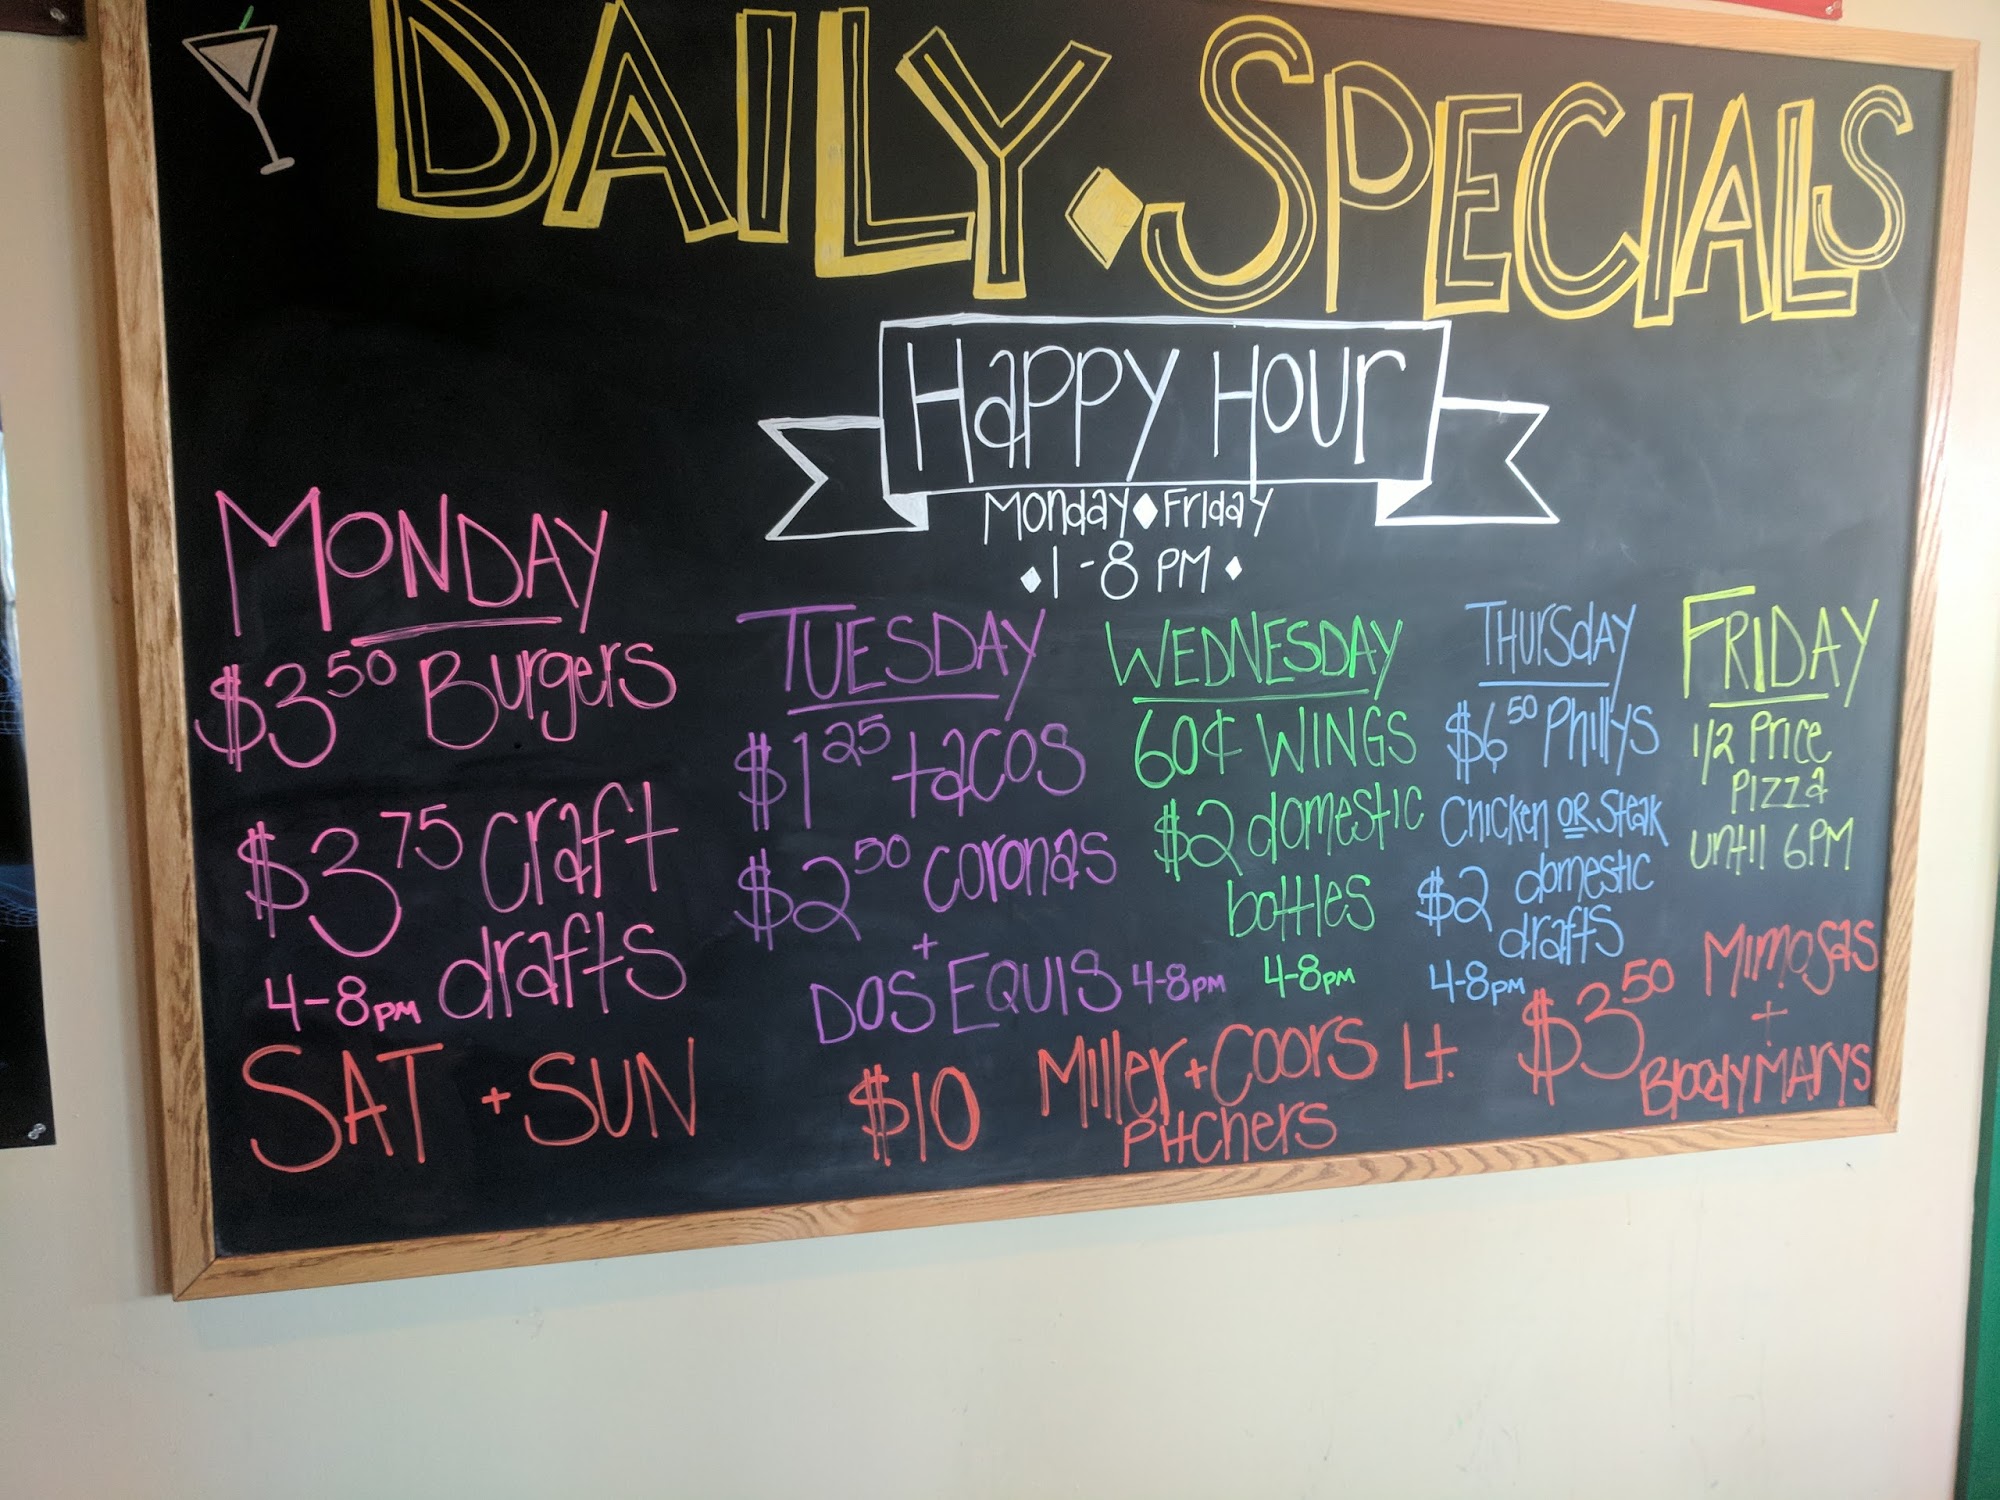 DAILY SPECIALS
Happy Hour
Monday Friday
1-8 PM
MONDAY
$3.50 Burgers
$3.75 craft
drafts
4-8PM
TUESDAY
$1.25 tacos
$2.50 coronas
+
DOS EQUIS 4-8PM
WEDNESDAY
60¢ WINGS
$2 domestic
bottles
4-8PM
THURSdAY
$6.50 Phillys
CHicken OR Steak
$2 domestic
drafts
4-8PM
FRIDAY
1/2 Price
PIZZa
until 6PM
SAT + SUN
$10 Miller + Coors Lt.
Pitchers
$3.50 Mimosas
+
Bloody MARYS